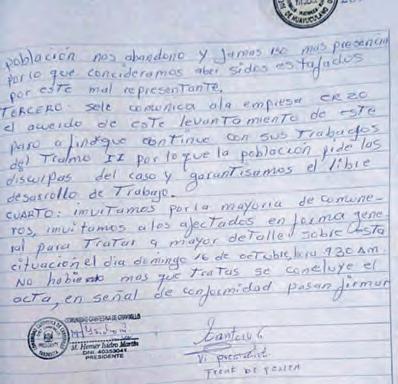 población nos abandono y jamas iso mas presencia
por lo que concideramos aber sidos estafados
por este mal representante.
TERCERO: sele comunica ala empresa CRZO
el acuerdo de este levantamiento de este
paro a findeque continue con sus Trabajos
del Tramo II por lo que la población pide las
disculpas del caso y garantisamos el libre
desarollo de Trabajo.
CUARTO: invitamos por la mayoria de comune-
ros, invitamos a los afectados en forma gene-
ral para Tratar a mayor detalles sobre esta
cituación el dia domingo 16 de octubre, hora 9:30 Am
No habiendo mas que tratas se concluye el
acta, en señal de conformidad pasan firmar
COMUNIDAD CAMPESINA DE
M. Homer Isidro Martin
DNI. 40353041
PRESIDENTE
Vi president